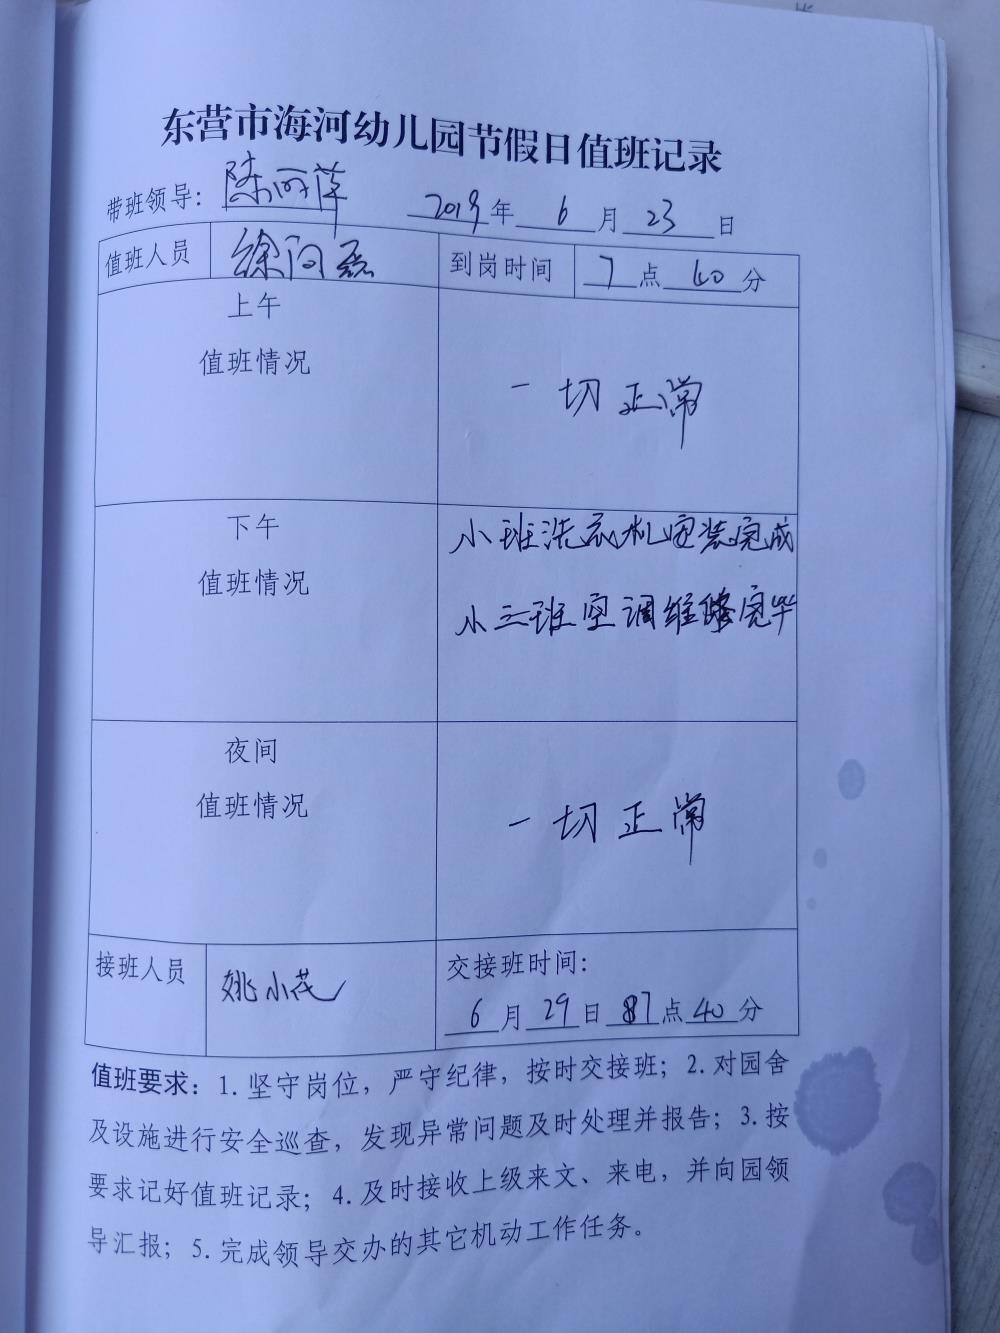 东营市海河幼儿园节假日值班记录
带班领导：陈丽萍 2019年 6月23日
值班人员 徐 到岗时间 7点40分
上午
值班情况
一切正常
下午
值班情况
小班洗衣机安装完成
小三班空调维修完毕
夜间
值班情况
一切正常
接班人员 姚小花 交接班时间：
6月29日 7点40分
值班要求：1.坚守岗位，严守纪律，按时交接班；2.对园舍
及设施进行安全巡查，发现异常问题及时处理并报告；3.按
要求记好值班记录；4.及时接收上级来文、来电，并向园领
导汇报；5.完成领导交办的其它机动工作任务。